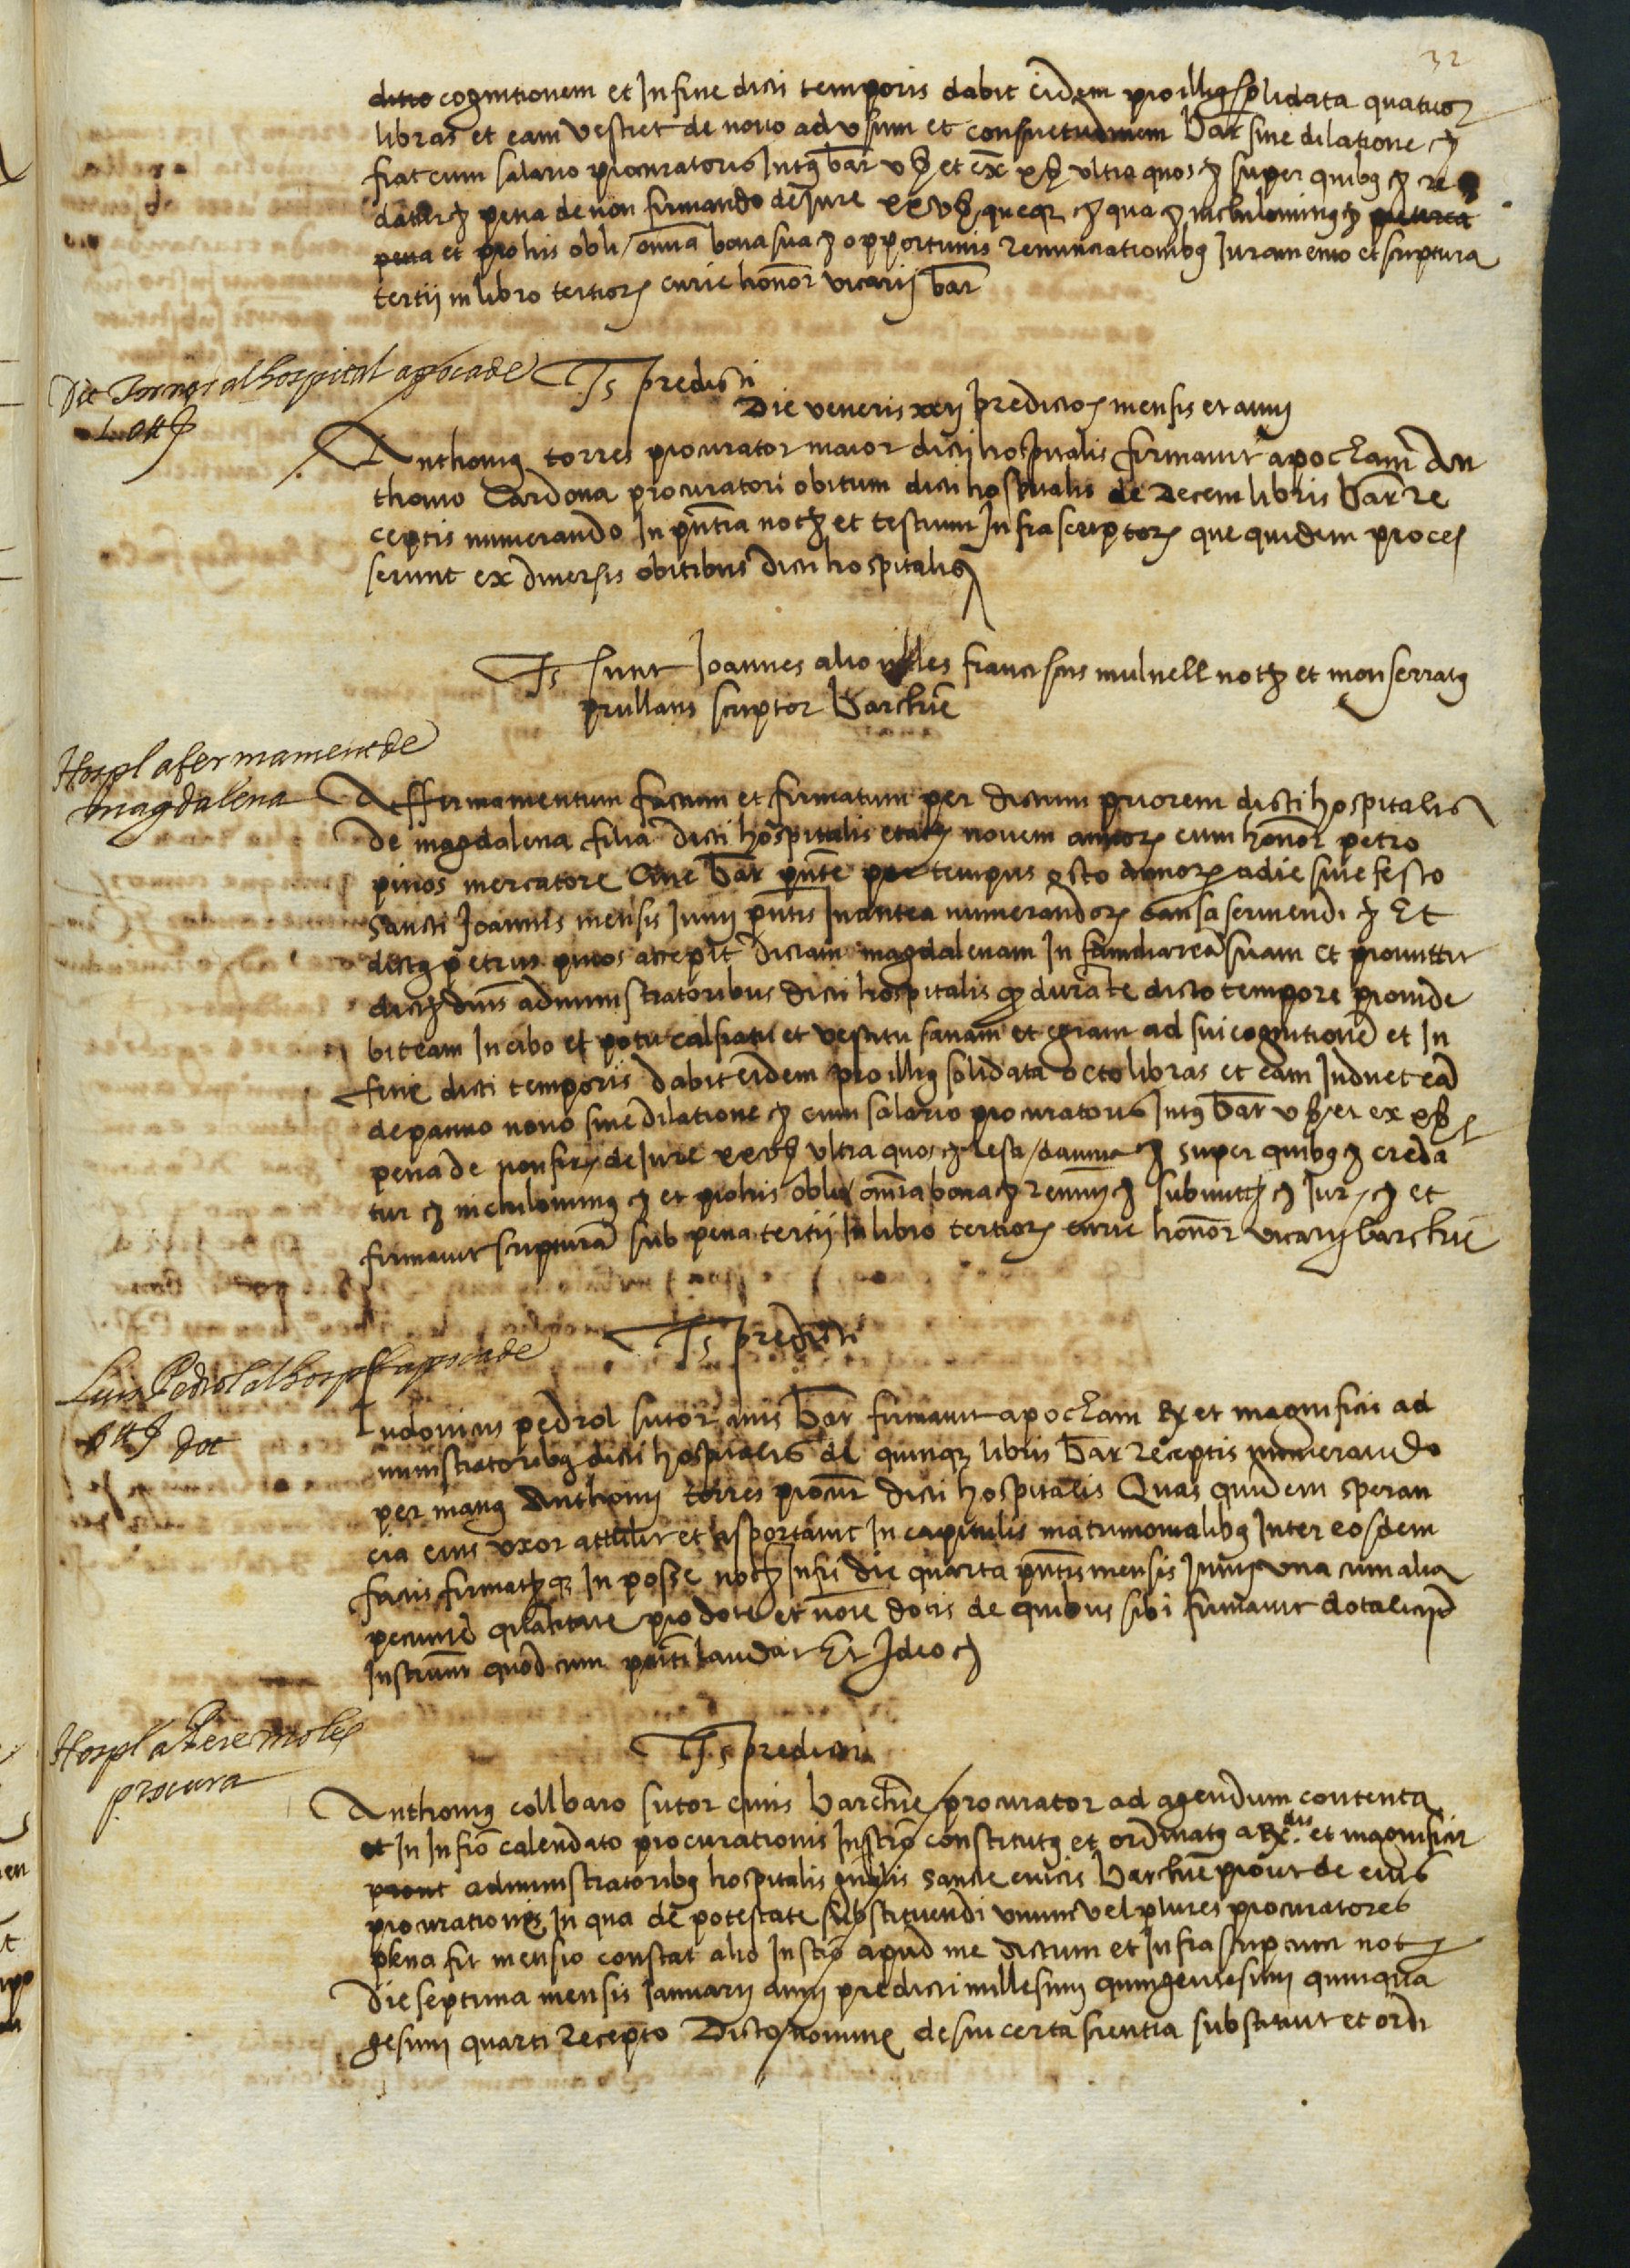 32
ditio cognitionem et in fine dicti temporis dabit eidem pro illius solidata quatuor
libras et eam vestiet de novo ad usum et consuetudinem bar sine dilatione &
fiat cum salario procuratoris intus bar v ß et ex x ß ultra quos & super quibus & cre
datur & pena de non firmando de jure xxv ß queque & qua & nichilominus & preterea
pena et pro his obli / omnia bona sua & opportunis renunciationibus juramento et scriptura
tertij in libro tertiorum curie honor vicarij bar
al hospital apoca de
Ts predicti
Die veneris xxij predictorum mensis et anni
Anthonius torres procurator maior dicti hospitalis firmavit apocham An
thonio Cardona procuratori obitum dicti hospitalis de decem libris bar re
ceptis numerando in pntia not et testium infrascriptorum que quidem proces
serunt ex diversis obitibus dicti hospitalis
Ts sunt Joannes franciscus mulnell not et monserratus
prullans scriptor barchne
Hospl afermament de
magdalena
Affirmamentum factum et firmatum per dictum priorem dicti hospitalis
de magdalena filia dicti hospitalis etatis novem annorum cum honor petro
pinos mercatore cive bar pnte per tempus octo annorum a die sive festo
Sancti Joannis mensis Junij pntis in antea numerandorum causa serviendi & Et
dictus petrus pinos accepit dictam magdalenam in familiarem suam et promittit
dictis dnis administratoribus dicti hospitalis q durate dicto tempore provide
bit eam in cibo et potu calsiatu et vestitu sanam et egram ad sui cognitione et in
fine dicti temporis dabit eidem pro illius solidata octo libras et eam induet ea
de panno novo sine dilatione & cum salario procuratoris intus bar v ß et ex x ß
pena de non fir de jure xxv ß ultra quos & resti / damna & super quibus & creda
tur & nichilominus & et pro his obli / omnia bona & renun & submitt & Jur & et
firmavit scriptura sub pena tertij in libro tertiorum curie honor vicarij barchne
Ts predicti
Luis Pedrol al hospl apoca de
dot
Ludovicus pedrol sutor civis bar firmavit apocham Rx et magnificis ad
ministratoribus dicti hospitalis de quinque libris bar receptis numerando
per manus Anthonij torres procur dicti hospitalis Quas quidem speran
cia eius uxor attulit et asportavit in capitulis matrimonialibus inter eosdem
factis firmatisque in posse not infri die quarta pntis mensis Junij una cum alia
pecunie qtitate pro dote et noie dotis de quibus sibi firmavit dotalicij
instrumt quod cum pnti laudat Et Ideo &
Hospl a Pere moles
procura
Ts predicti
Anthonius collbaro sutor civis barchne / procurator ad agendum contenta
et in infro calendato procurationis instro constitutus et ordinatus a Rx dis et magnificis
prout administratoribus hospitalis gnalis sancte crucis barchne prout de eius
procurationis in qua de potestate substituendi unum vel plures procuratores
plena fit mensio constat alio instro apud me dictum et infrascriptum not
die septima mensis Januarij anni predicti millesimi quingentesimi quinqua
gesimi quarti recepto Dicto nomine de sui certa scientia substituit et ordi